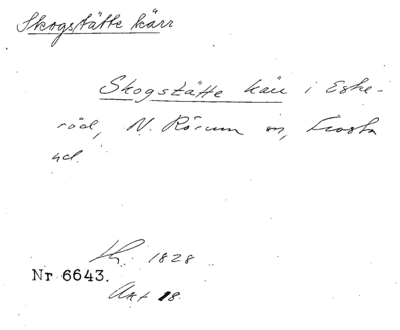 Skogstätte kärr
Skogstätte kärr i Eske-
röd, N. Rörum sn, Frosta
hd.
1828
Nr 6643.
Akt 18.